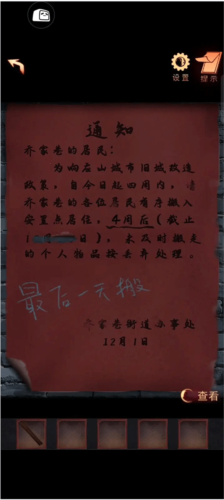 设置
提示
通知
齐家巷的居民:
为响右山城市旧城改造
政策,自今日起四周内,
齐家巷的各位居民有序搬入
安置点居住,4周后(截止
1 日),未及时搬走
的个人物品按丢弃处理。
最后一天搬
齐家巷街道办事处
12月1日
查看